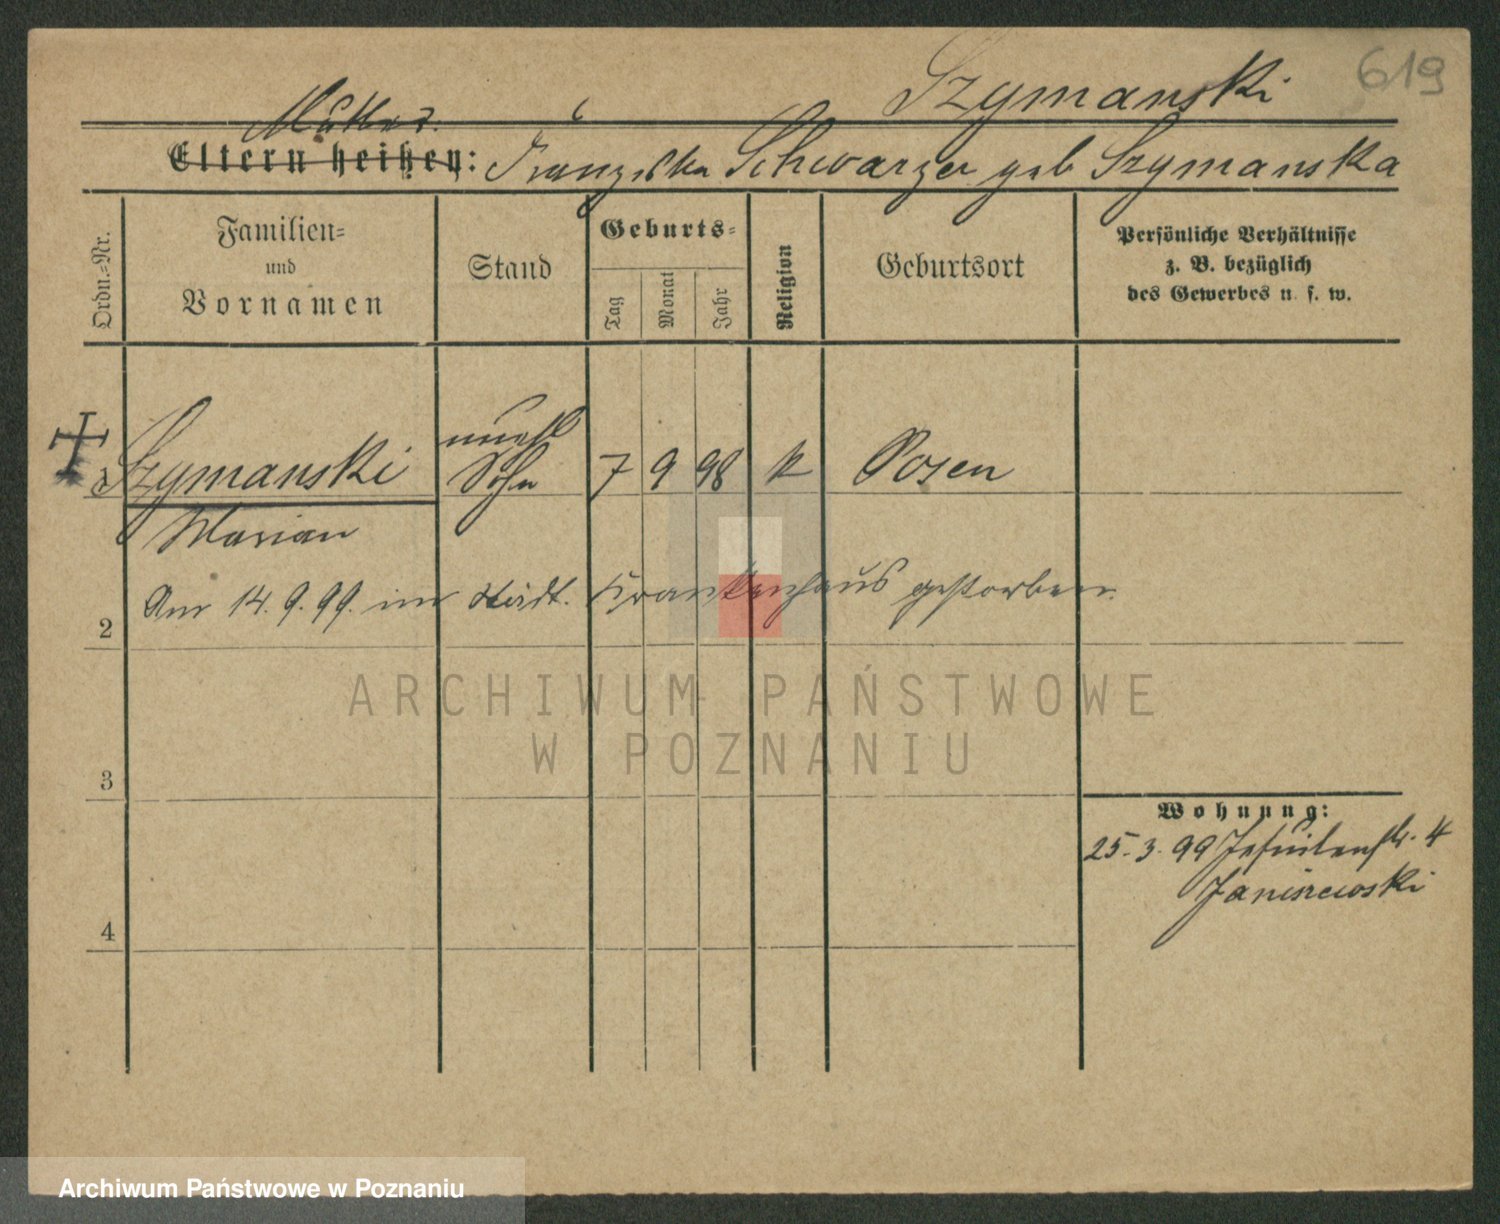 619
Szymanski
Mutter.
Eltern heißen: Franziska Schwarzer geb Szymanska
Ordn.=Nr.
Familien=
und
Vornamen
Stand
Geburts=
Tag
Monat
Jahr
Religion
Geburtsort
Persönliche Verhältnisse
z. B. bezüglich
des Gewerbes u. s. w.
Szymanski unehl Sohn 7 9 98 k Posen
Marian
Am 14.9.99. im städt. Krankenhaus gestorben.
2
3
4
Wohnung:
25.3.99 Jesuitenstr. 4
Janiszewski
ARCHIWUM PAŃSTWOWE
W POZNANIU
Archiwum Państwowe w Poznaniu